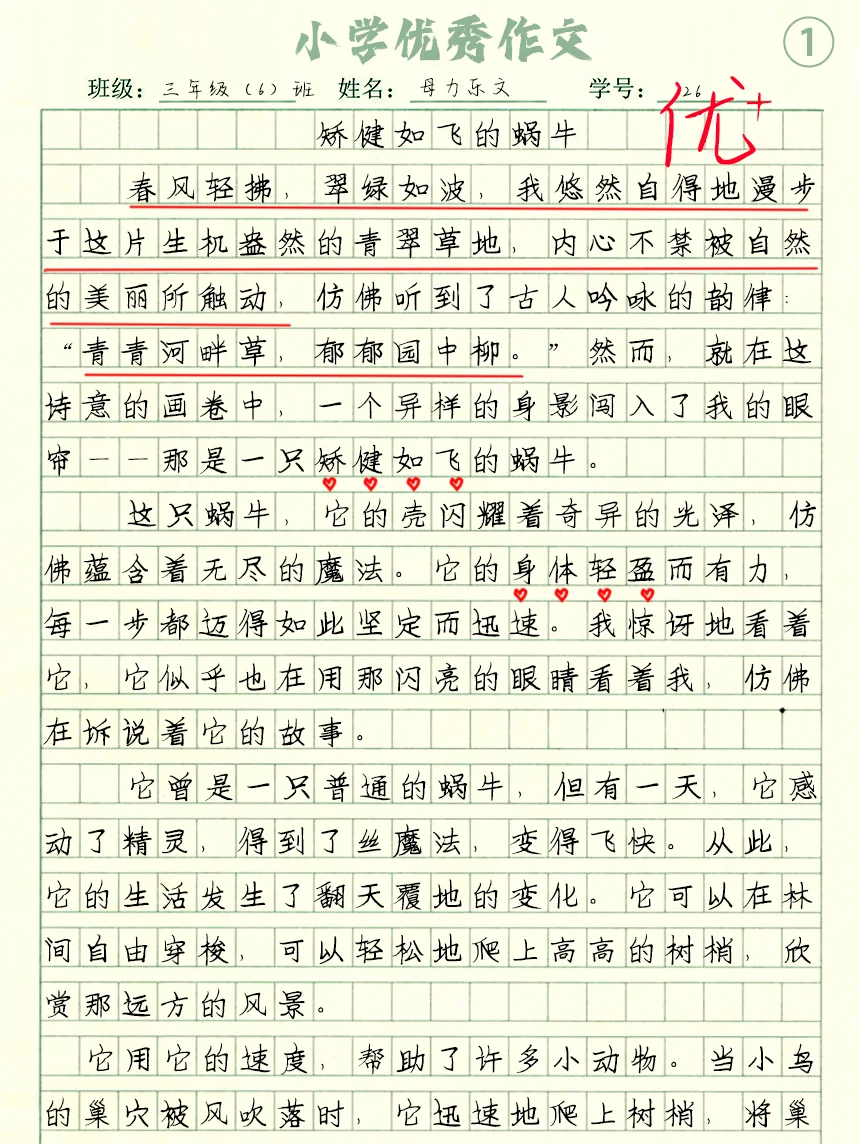 小学优秀作文
1
班级：三年级（6）班 姓名：母力乐文 学号：26
优+
矫健如飞的蜗牛
春风轻拂，翠绿如波，我悠然自得地漫步
于这片生机盎然的青翠草地，内心不禁被自然
的美丽所触动，仿佛听到了古人吟咏的韵律：
“青青河畔草，郁郁园中柳。”然而，就在这
诗意的画卷中，一个异样的身影闯入了我的眼
帘——那是一只矫健如飞的蜗牛。
这只蜗牛，它的壳闪耀着奇异的光泽，仿
佛蕴含着无尽的魔法。它的身体轻盈而有力，
每一步都迈得如此坚定而迅速。我惊讶地看着
它，它似乎也在用那闪亮的眼睛看着我，仿佛
在诉说着它的故事。
它曾是一只普通的蜗牛，但有一天，它感
动了精灵，得到了丝魔法，变得飞快。从此，
它的生活发生了翻天覆地的变化。它可以在林
间自由穿梭，可以轻松地爬上高高的树梢，欣
赏那远方的风景。
它用它的速度，帮助了许多小动物。当小鸟
的巢穴被风吹落时，它迅速地爬上树梢，将巢